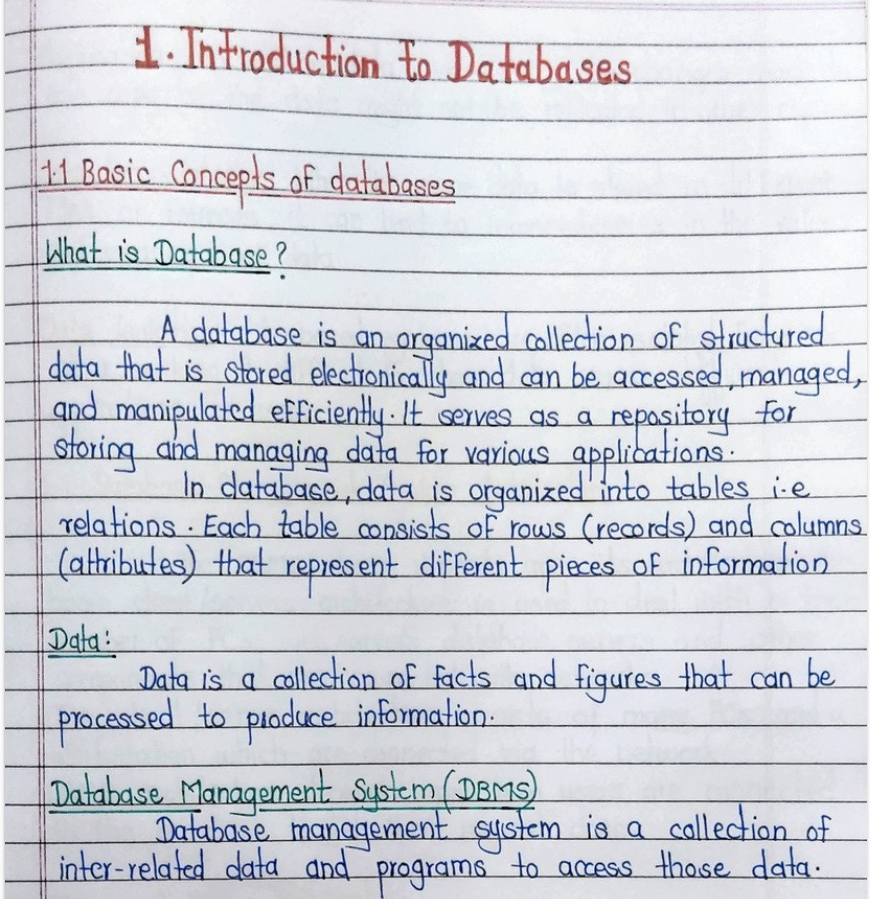 1. Introduction to Databases
1.1 Basic Concepts of databases
What is Database?
A database is an organized collection of structured
data that is stored electronically and can be accessed, managed,
and manipulated efficiently. It serves as a repository for
storing and managing data for various applications.
In database, data is organized into tables i.e
relations. Each table consists of rows (records) and columns
(attributes) that represent different pieces of information
Data:
Data is a collection of facts and figures that can be
processed to produce information.
Database Management System (DBMS)
Database management system is a collection of
inter-related data and programs to access those data.